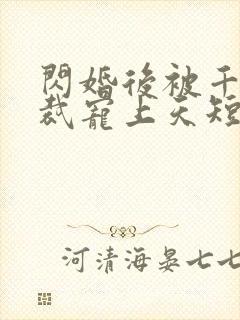 閃婚後被千
裁寵上天短
河清海晏七七